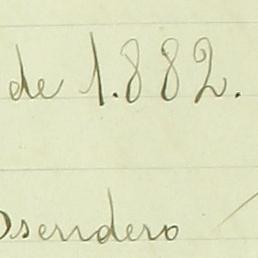 de 1.882.
Osendero